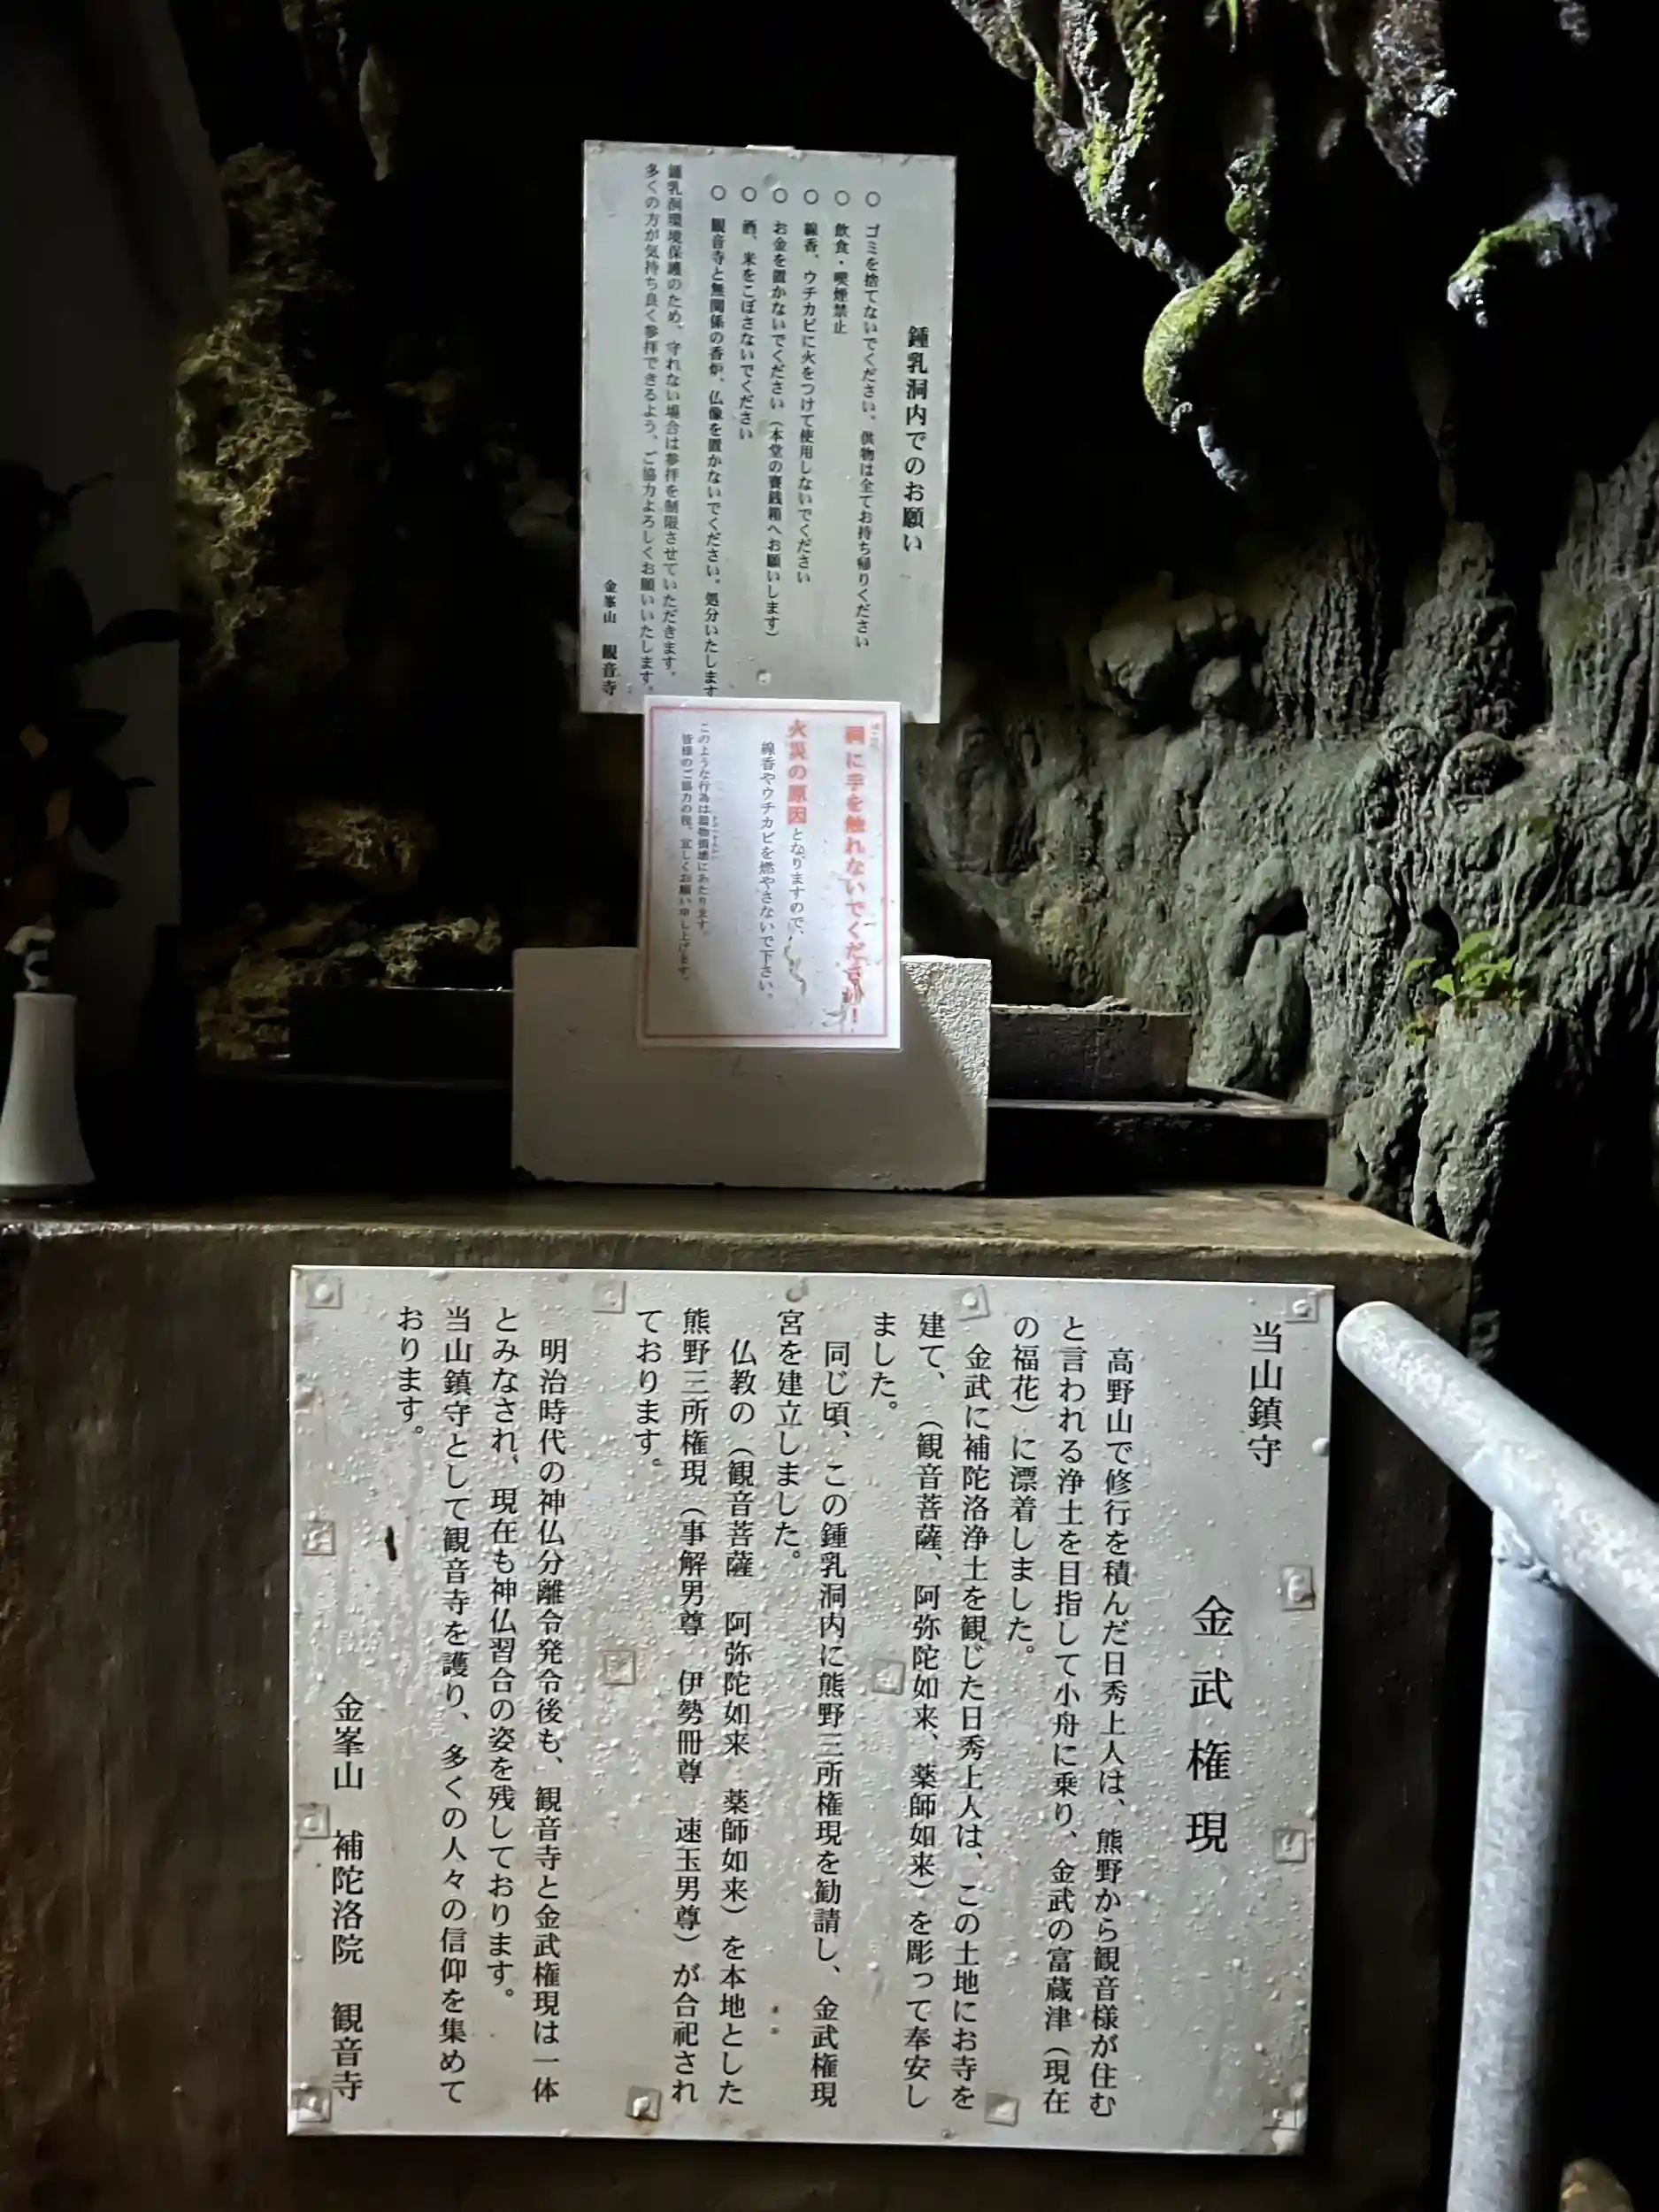 鍾乳洞内でのお願い
○ ゴミを捨てないでください。供物は全てお持ち帰りください
○ 飲食・喫煙禁止
○ 線香、ウチカビに火をつけて使用しないでください
○ お金を置かないでください（本堂の賽銭箱へお願いします）
○ 酒、米をこぼさないでください
○ 観音寺と無関係の香炉、仏像を置かないでください。処分いたします
鍾乳洞環境保護のため、守れない場合は参拝を制限させていただきます。
多くの方が気持ち良く参拝できるよう、ご協力よろしくお願いいたします。
金峯山 観音寺
祠に手を触れないでください！
火災の原因となりますので、
線香やウチカビを燃やさないで下さい。
このような行為は器物損壊にあたります。
皆様のご協力の程、宜しくお願い申し上げます。
当山鎮守
金武権現
高野山で修行を積んだ日秀上人は、熊野から観音様が住む
と言われる浄土を目指して小舟に乗り、金武の富蔵津（現在
の福花）に漂着しました。
金武に補陀洛浄土を観じた日秀上人は、この土地にお寺を
建て、（観音菩薩、阿弥陀如来、薬師如来）を彫って奉安し
ました。
同じ頃、この鍾乳洞内に熊野三所権現を勧請し、金武権現
宮を建立しました。
仏教の（観音菩薩 阿弥陀如来 薬師如来）を本地とした
熊野三所権現（事解男尊 伊勢冊尊 速玉男尊）が合祀され
ております。
明治時代の神仏分離令発令後も、観音寺と金武権現は一体
とみなされ、現在も神仏習合の姿を残しております。
当山鎮守として観音寺を護り、多くの人々の信仰を集めて
おります。
金峯山 補陀洛院 観音寺